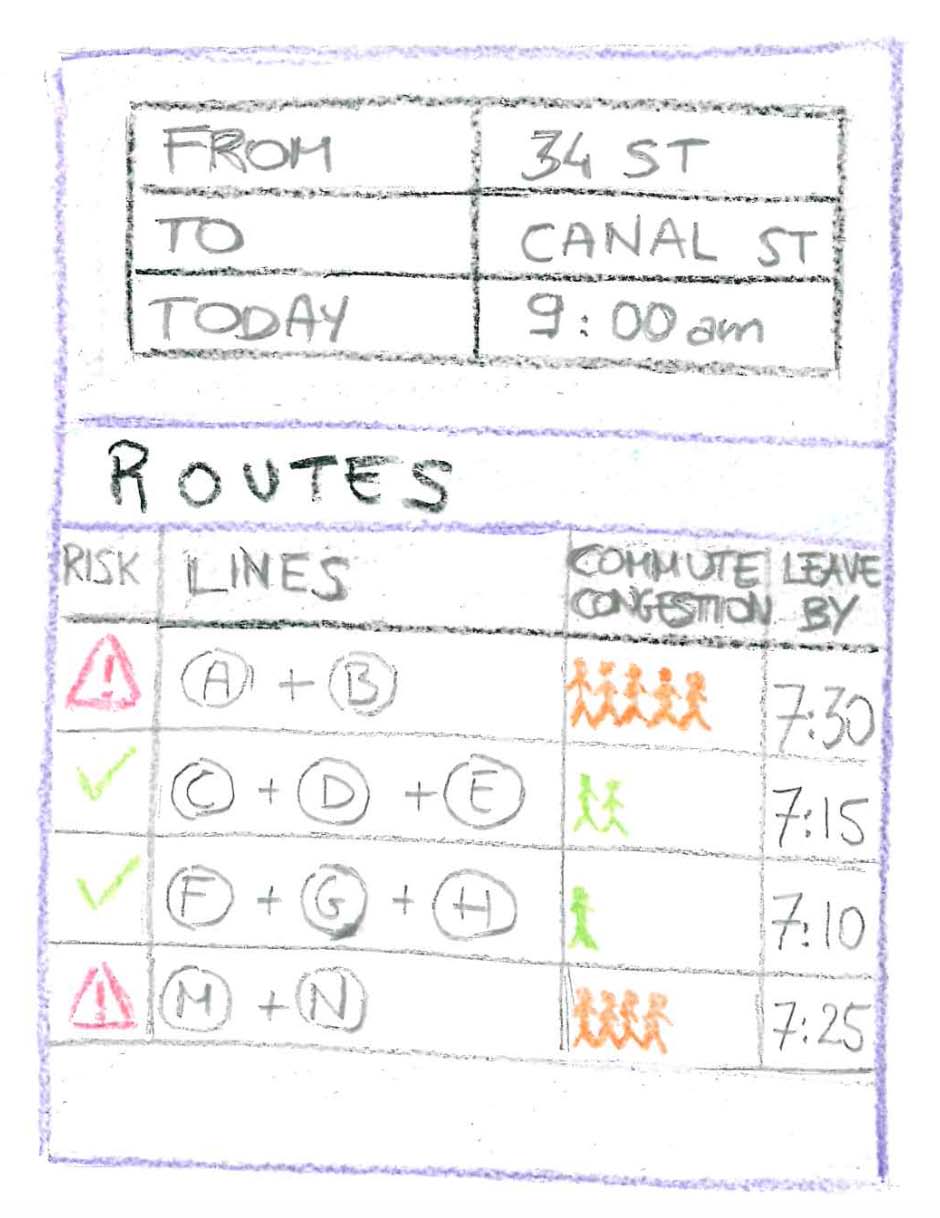 FROM 34 ST
TO CANAL ST
TODAY 9:00 am
ROUTES
RISK LINES COMMUTE CONGESTION LEAVE BY
! A + B 7:30
C + D + E 7:15
F + G + H 7:10
! M + N 7:25